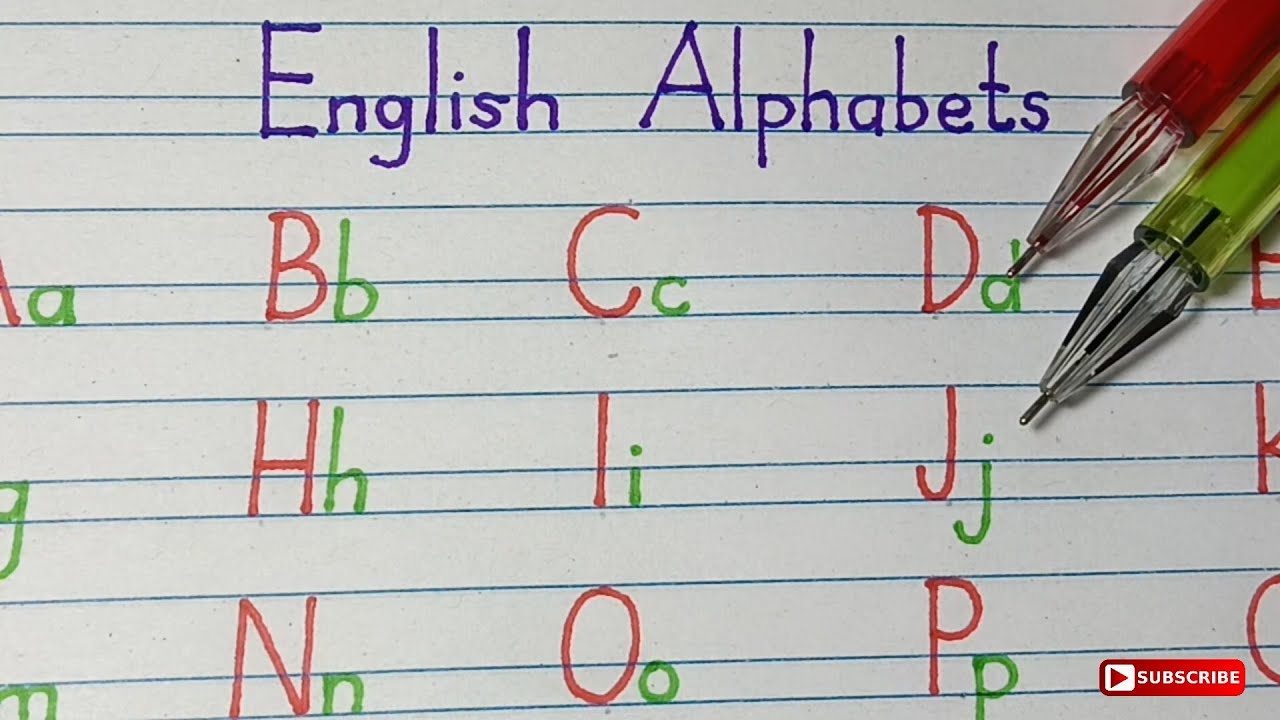 English Alphabets
Aa Bb Cc Dd E
g Hh Ii Jj K
m Nn Oo Pp
SUBSCRIBE